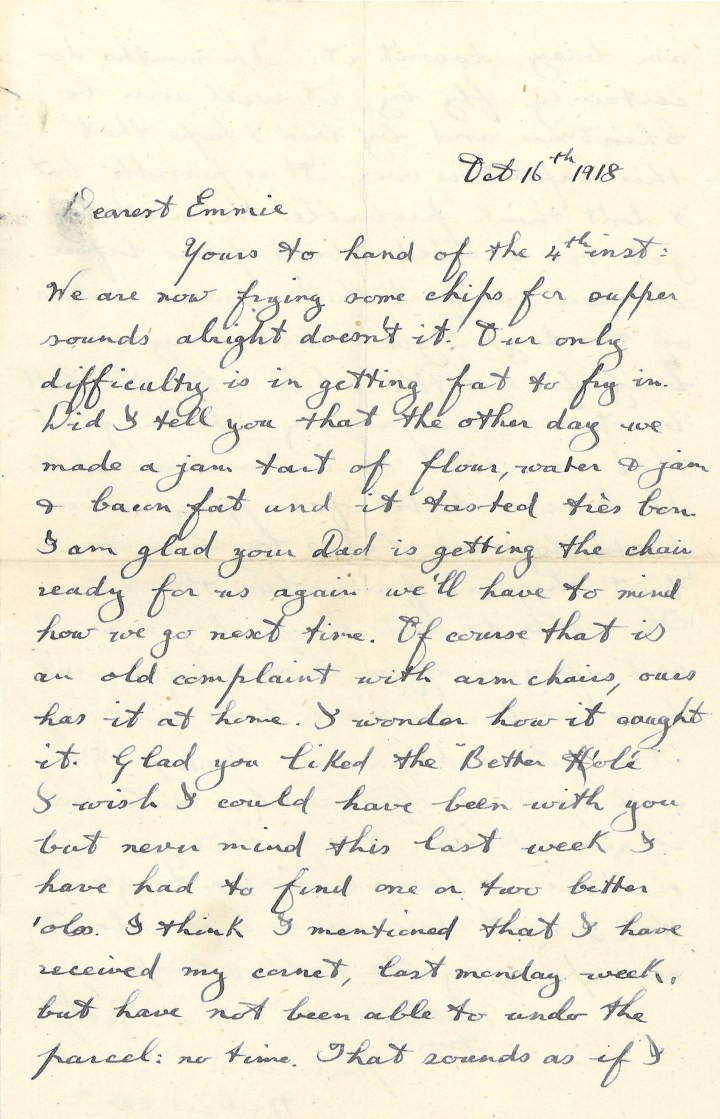 Oct 16th 1918
Dearest Emmie
Yours to hand of the 4th inst:
We are now frying some chips for supper
sounds alright doesn't it. Our only
difficulty is in getting fat to fry in.
Did I tell you that the other day we
made a jam tart of flour, water & jam
& bacon fat and it tasted très bon.
I am glad your Dad is getting the chair
ready for us again we'll have to mind
how we go next time. Of course that is
an old complaint with arm chairs, ours
has it at home. I wonder how it caught
it. Glad you liked the "Better 'Ole
I wish I could have been with you
but never mind this last week I
have had to find one or two better
'oles. I think I mentioned that I have
received my cornet, last monday week,
but have not been able to undo the
parcel: no time. That sounds as if I